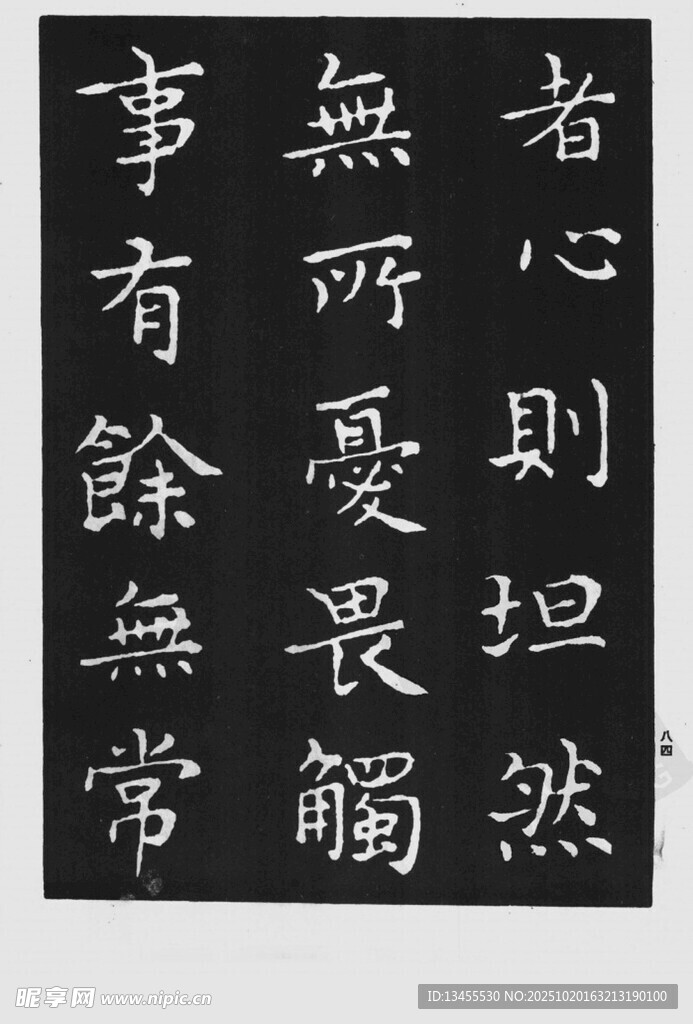 者心則坦然
無所憂畏觸
事有餘無常
八四
昵享网 www.nipic.cn
ID:13455530 NO:20251020163213190100